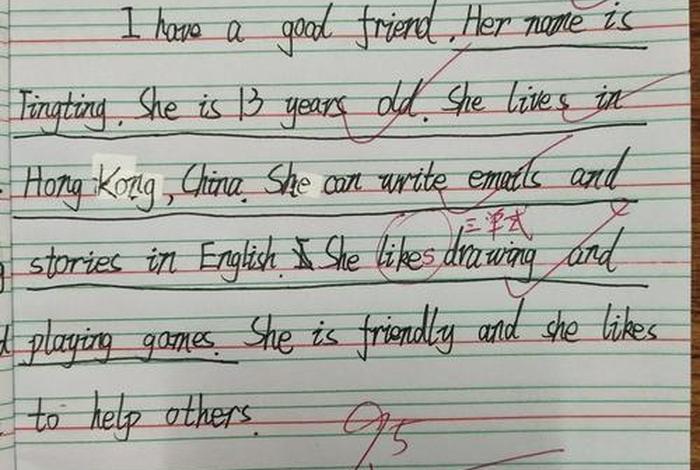 I have a good friend. Her name is
Tingting. She is 13 years old. She lives in
Hong Kong, China. She can write emails and
三单式
stories in English. She likes drawing and
playing games. She is friendly and she likes
to help others.
95